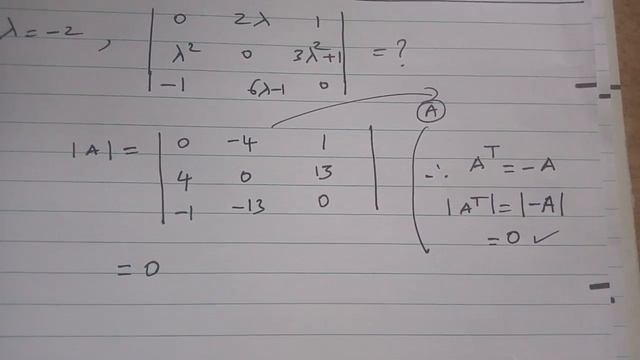 λ = -2 , | 0 2λ 1 |
| λ² 0 3λ²+1 | = ?
| -1 6λ-1 0 |
|A| = | 0 -4 1 |
| 4 0 13 |
| -1 -13 0 |
= 0
A
∴ Aᵀ = -A
|Aᵀ| = |-A|
= 0 ✓